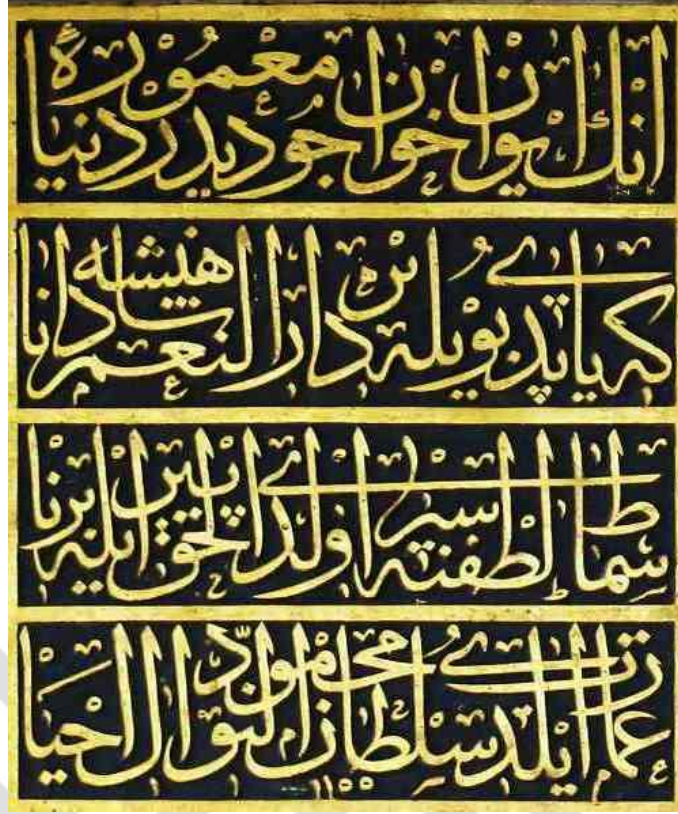 انك ايوان خوان جوديدر معمورهٔ دنيا
كه ياپدى بويله بر دار النعم شاهنشه دانا
سماط لطفنه سير اولدى الحق پير ايله برنا
عمارت ايلدى سلطان محمود النوال احيا ١١٥٥